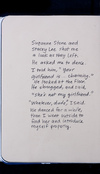 Suzanne Stone and
Stacey Lee shot me
a look as they left.
He asked me to dance.
I told him, "your
girlfriend is charming."
He looked at the floor.
He shrugged, and said,
"she's not my girlfriend."
"Whatever, dude," I said.
We danced for a while,
then I went outside to
find her and introduce
myself properly.